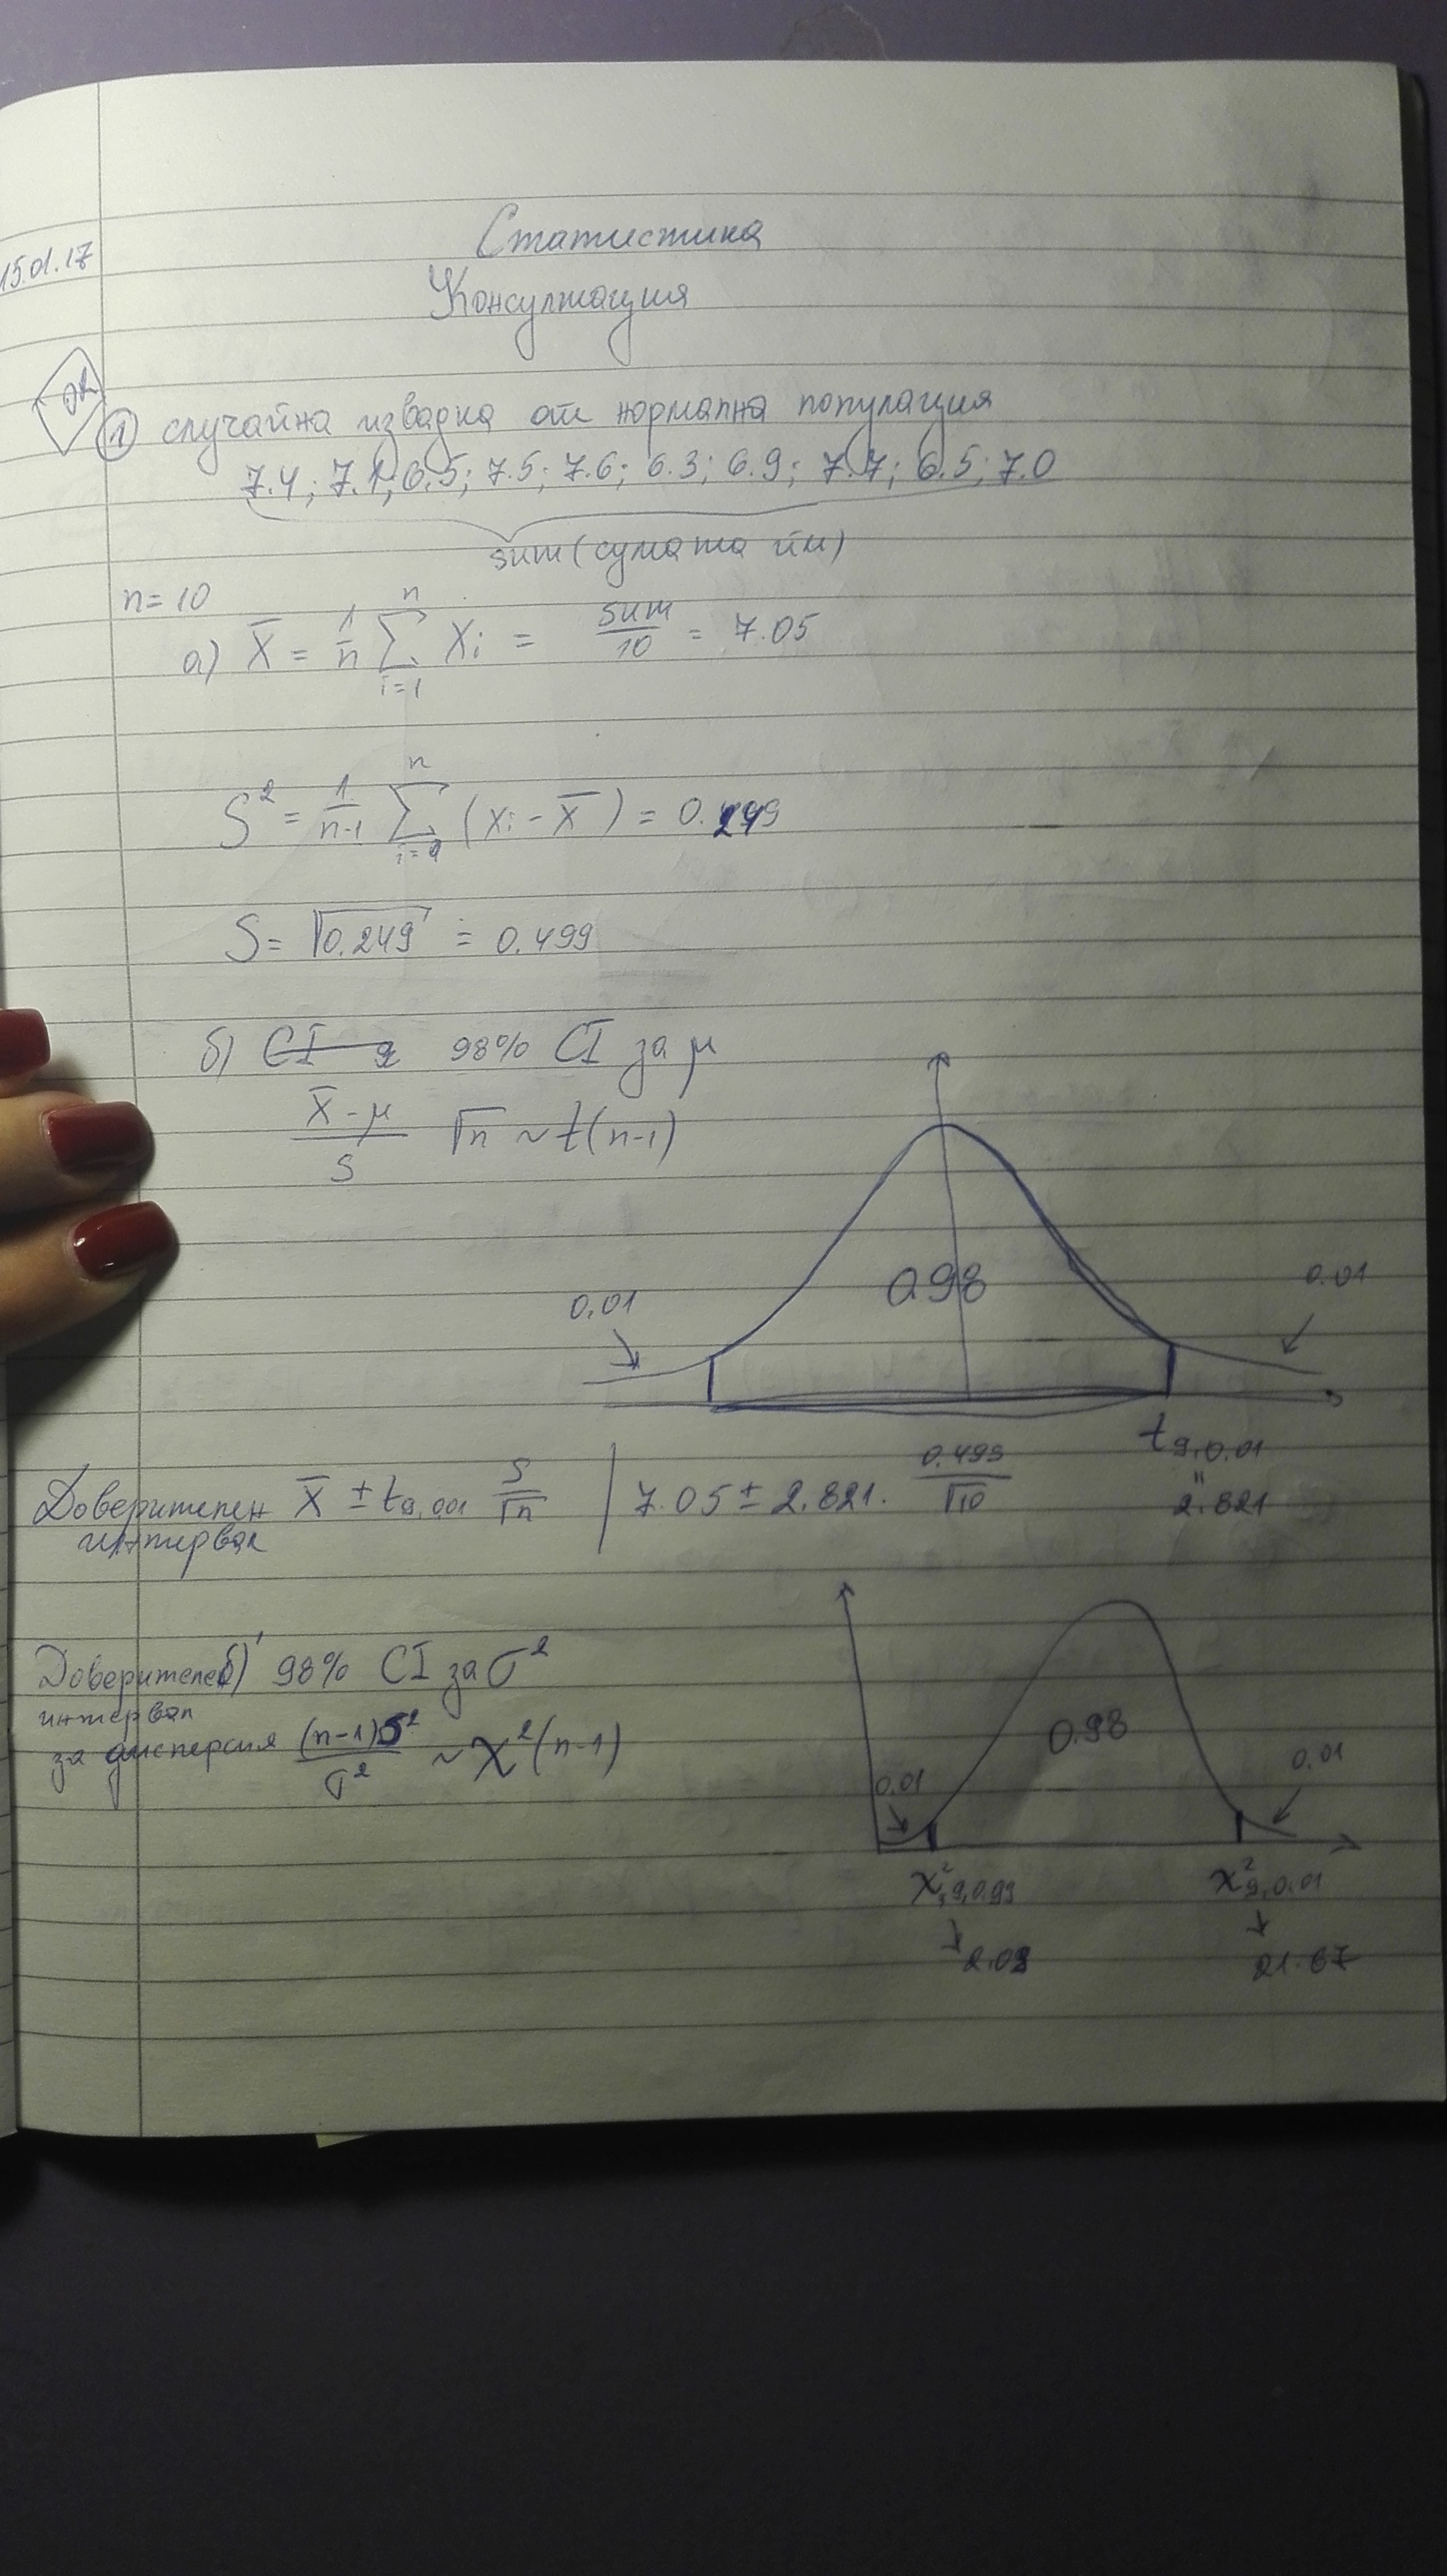 15.01.17
Статистика
Консултация
① случайна извадка от нормална популация
7.4; 7.1; 6.5; 7.5; 7.6; 6.3; 6.9; 7.7; 6.5; 7.0
sum (сумата им)
n = 10
а) X̄ = 1/n ∑ i=1 n Xi = sum/10 = 7.05
S² = 1/(n-1) ∑ n (xi - x̄) = 0.249
S = √0.249 = 0.499
б) 98% CI за μ
(x̄ - μ)/S √n ~ t(n-1)
0.01 0.98 0.01
t9,0.01
"
2.821
Доверителен X̄ ± t9,0.01 S/√n | 7.05 ± 2.821 . 0.499/√10
интервал
Доверителен б)' 98% CI за σ²
интервал
за дисперсия (n-1)S²/σ² ~ χ²(n-1)
0.01 0.98 0.01
χ²9,0.99 χ²9,0.01
21.67